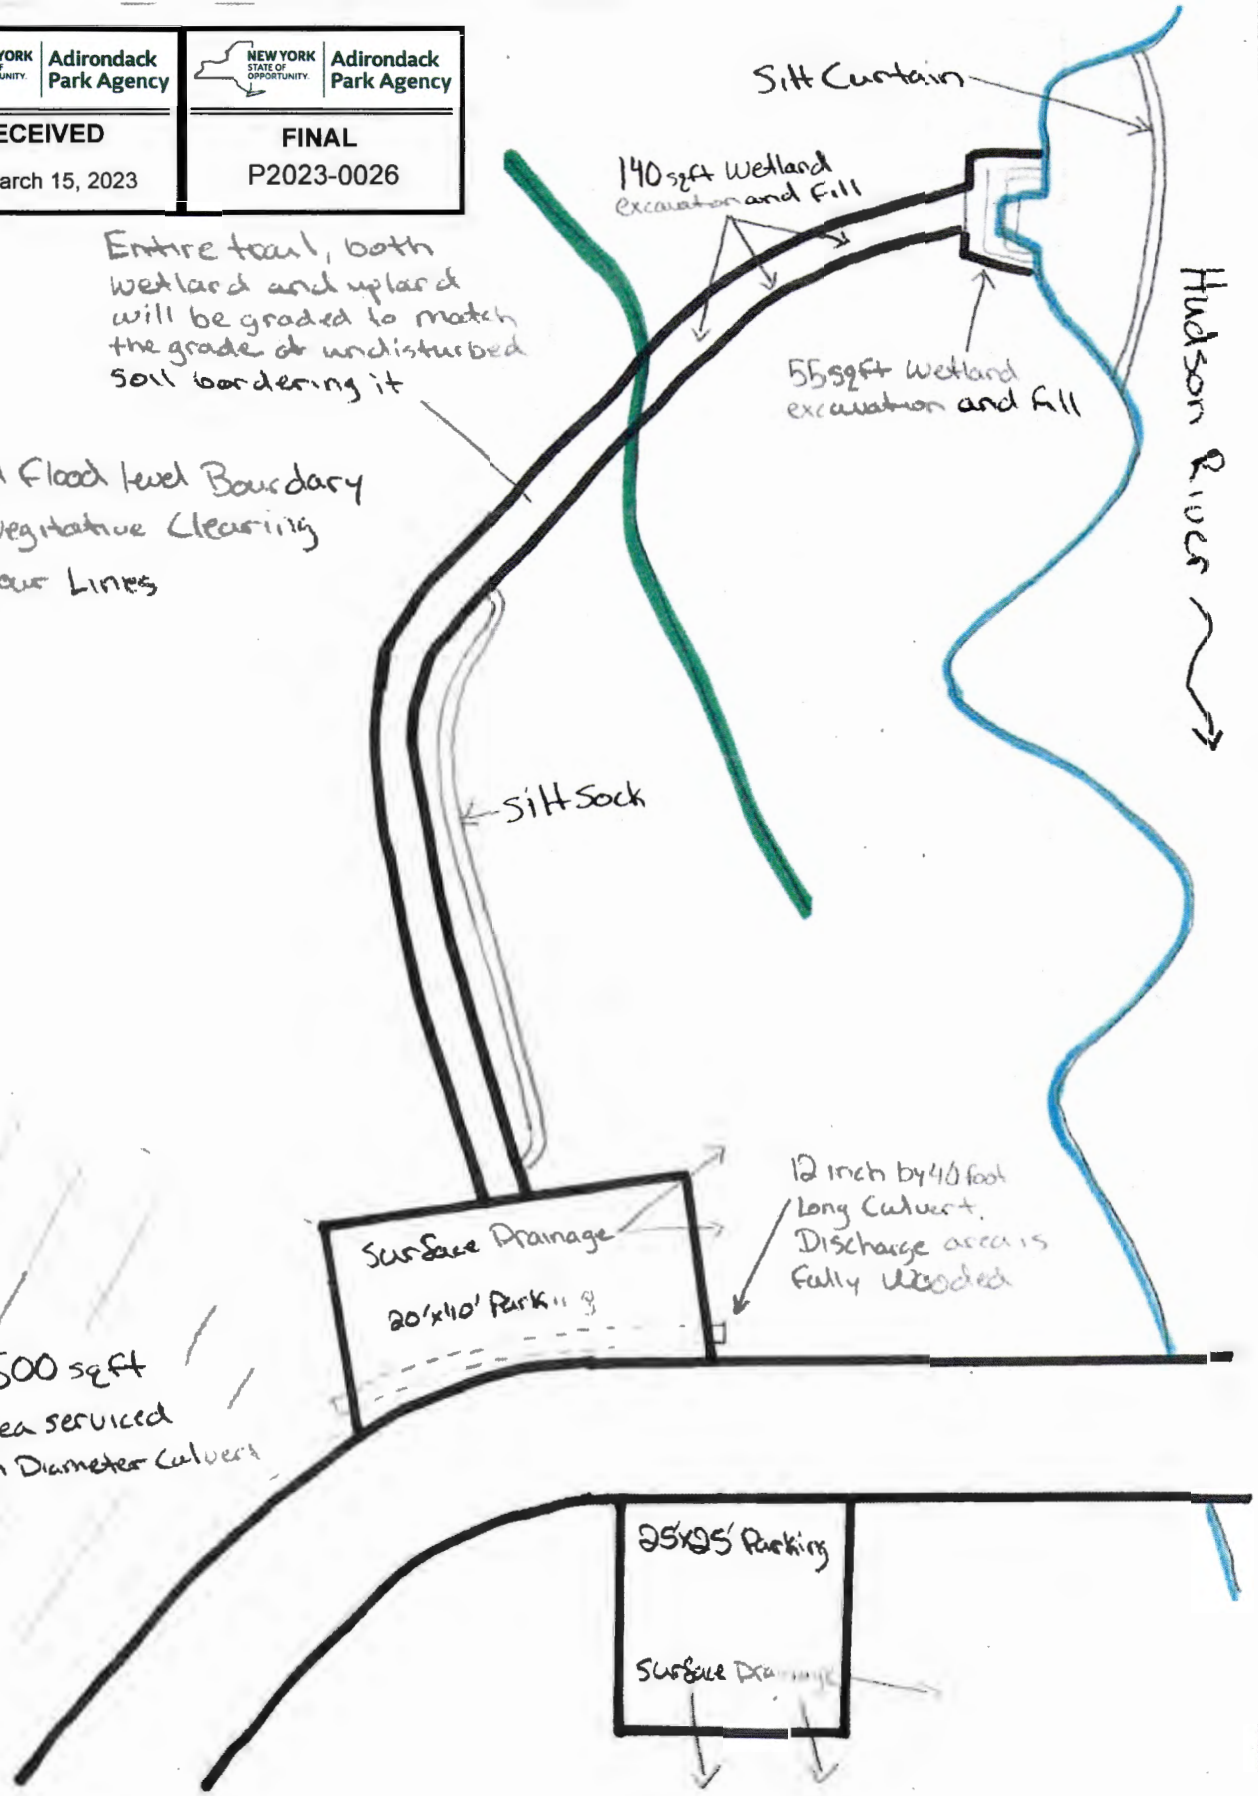 YORK
UNITY.
Adirondack
Park Agency
ECEIVED
arch 15, 2023
NEW YORK
STATE OF
OPPORTUNITY.
Adirondack
Park Agency
FINAL
P2023-0026
Silt Curtain
140 sqft Wetland
excavation and Fill
Entire trail, both
wetland and upland
will be graded to match
the grade of undisturbed
Soil bordering it
55 sqft Wetland
excavation and fill
Hudson River
Flood level Boundary
Vegitative Clearing
our Lines
Silt Sock
12 inch by 40 foot
Long Culvert.
Discharge area is
Fully Wooded
Surface Drainage
20'x40' Parking
500 sqft
ea serviced
Diameter Culvert
25'x25' Parking
Surface Drainage